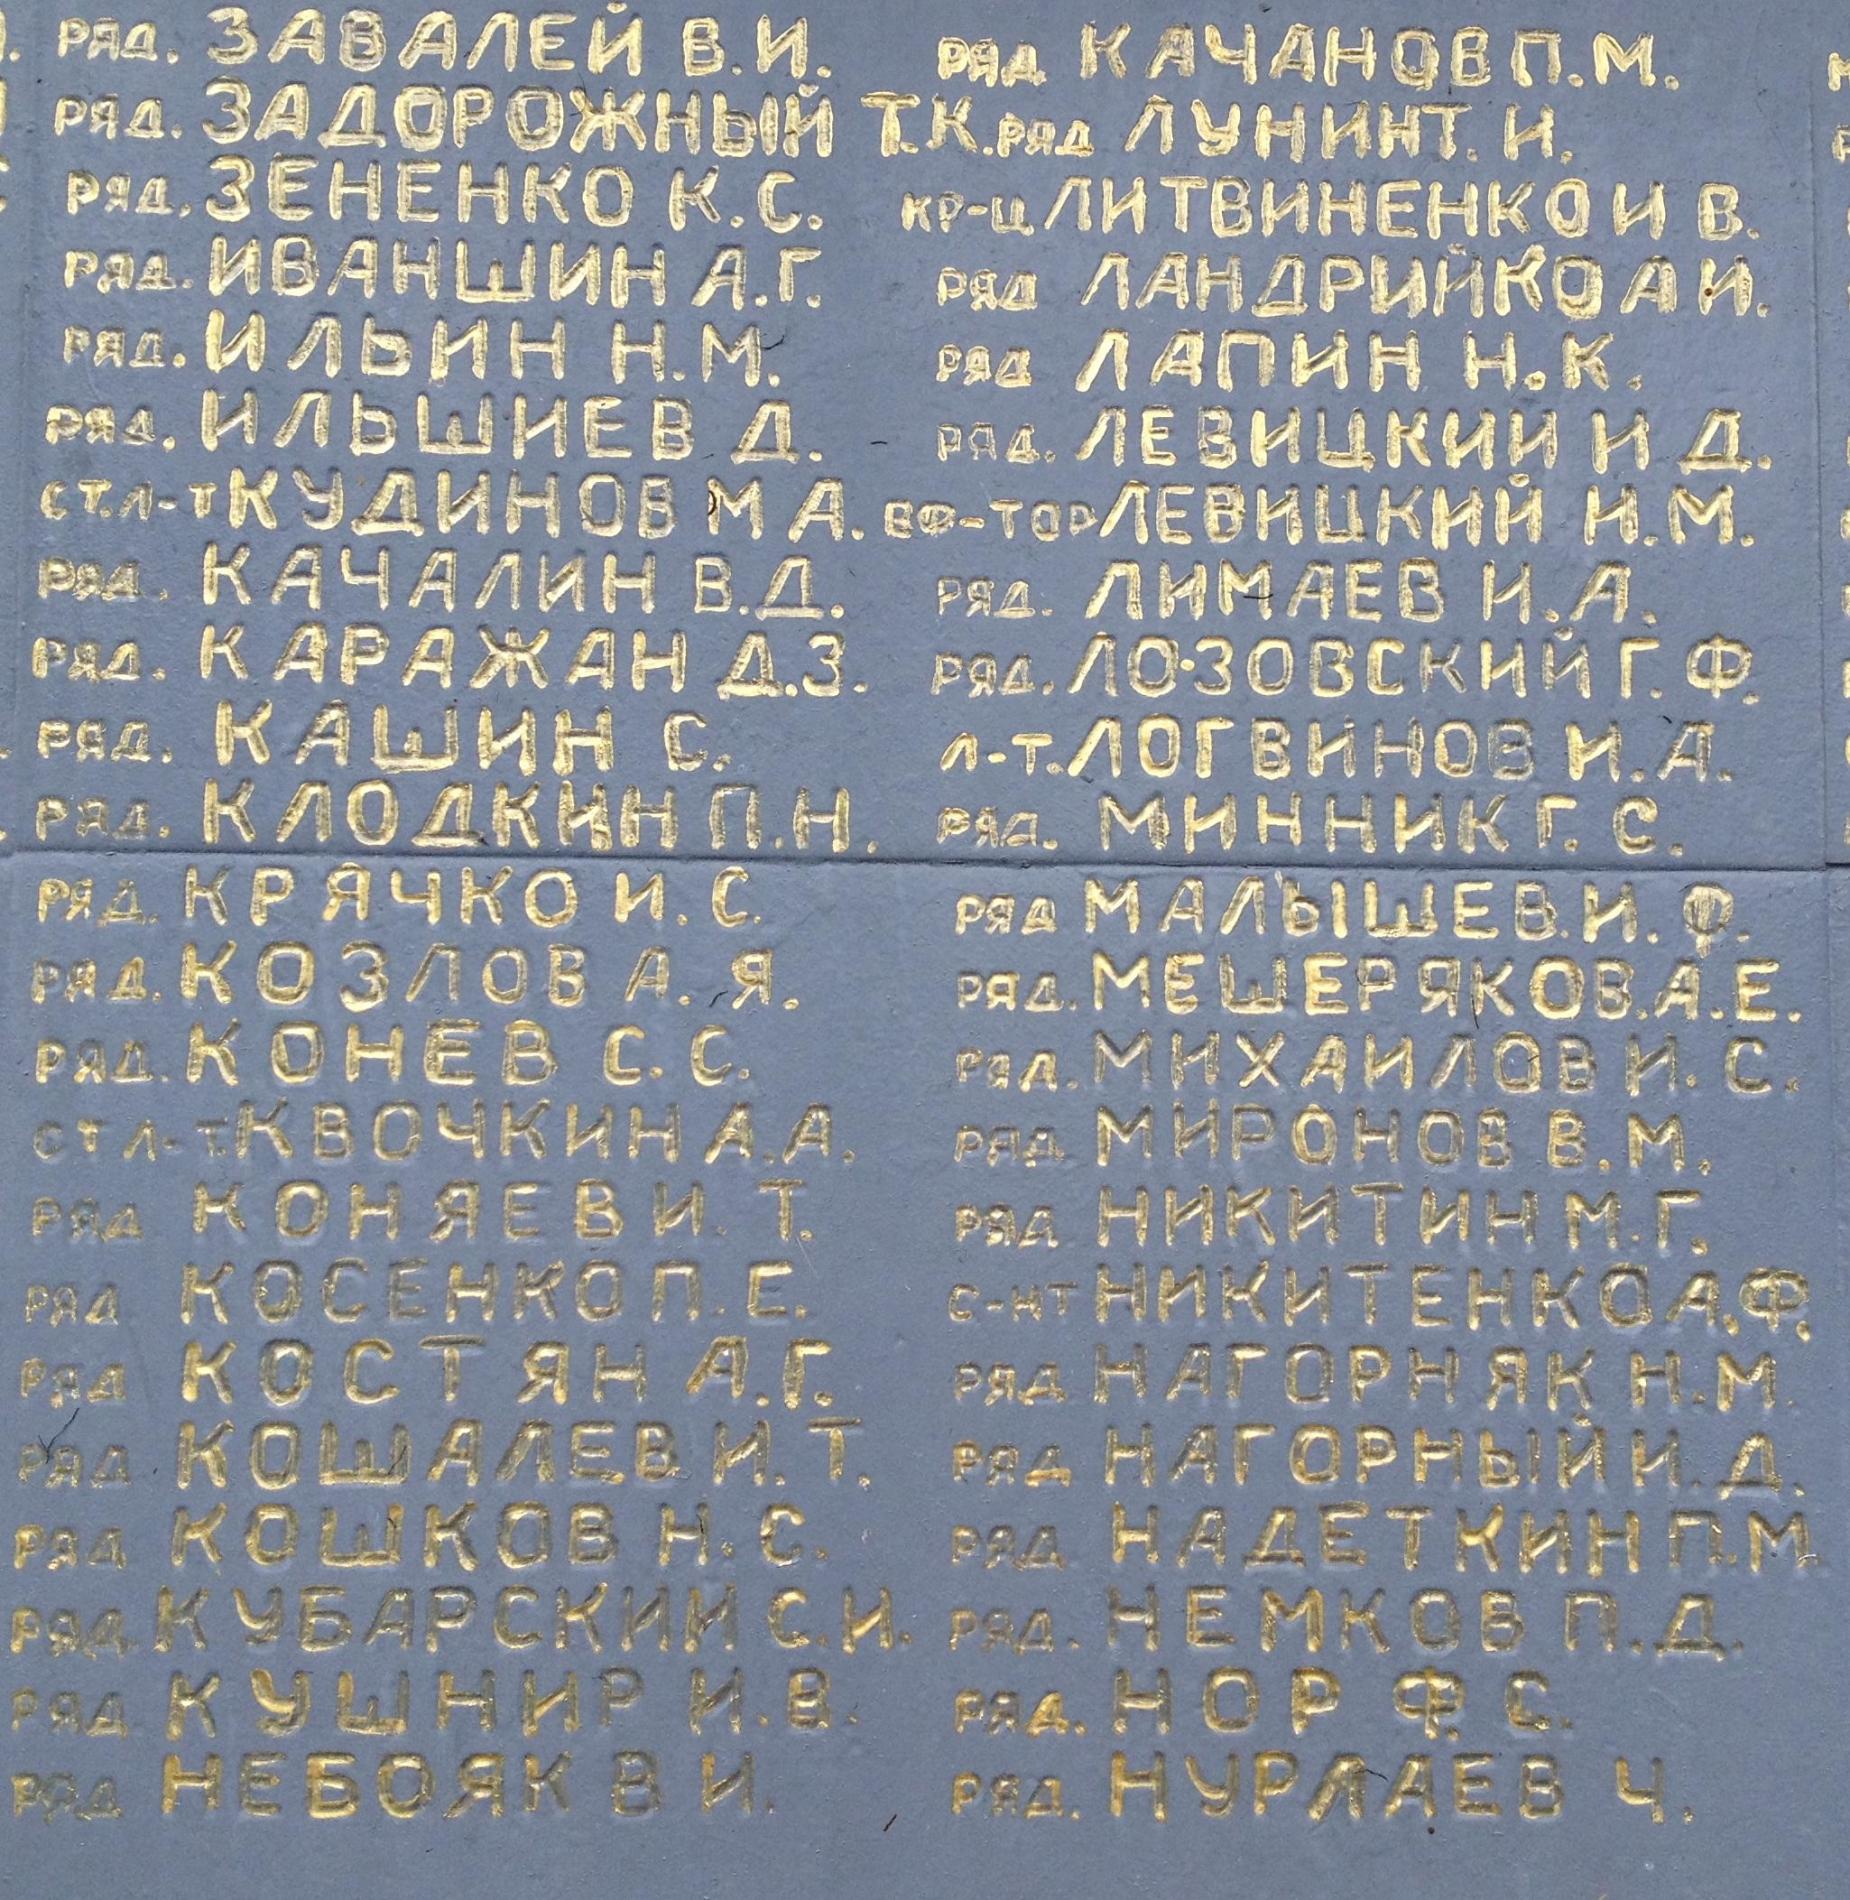 ряд. ЗАВАЛЕЙ В.И.
ряд. ЗАДОРОЖНЫЙ Т.К.
ряд. ЗЕНЕНКО К.С.
ряд. ИВАНШИН А.Г.
ряд. ИЛЬИН Н.М.
ряд. ИЛЬШИЕВ Д.
ст.л-т КУДИНОВ М А.
ряд. КАЧАЛИН В.Д.
ряд. КАРАЖАН Д.З.
ряд. КАШИН С.
ряд. КЛОДКИН П.Н.
ряд. КРЯЧКО И.С.
ряд. КОЗЛОВ А.Я.
ряд. КОНЕВ С.С.
ст л-т. КВОЧКИН А.А.
ряд КОНЯЕВ И.Т.
ряд КОСЕНКО П.Е.
ряд КОСТЯН А.Г.
ряд КОШАЛЕВ И.Т.
ряд КОШКОВ Н.С.
ряд. КУБАРСКИЙ С.И.
ряд КУШНИР И.В.
ряд НЕБОЯК В И.
ряд КАЧАНОВ П.М.
ряд ЛУНИН Т.И.
кр-ц ЛИТВИНЕНКО И В.
ряд ЛАНДРИЙКО А И.
ряд ЛАПИН Н.К.
ряд. ЛЕВИЦКИЙ И Д.
еф-тор ЛЕВИЦКИЙ И.М.
ряд. ЛИМАЕВ И.А.
ряд. ЛО·ЗОВСКИЙ Г.Ф.
л-т. ЛОГВИНОВ И.А.
ряд. МИННИК Г.С.
ряд МАЛЫШЕВ.И.Ф.
ряд. МЕШЕРЯКОВ.А.Е.
ряд. МИХАИЛОВ И.С.
ряд. МИРОНОВ В.М.
ряд НИКИТИН М.Г.
с-нт НИКИТЕНКО А.Ф.
ряд НАГОРНЯК Н.М.
ряд НАГОРНЫЙ И.Д.
ряд НАДЕТКИН П.М.
ряд. НЕМКОВ П.Д.
ряд. НОР Ф.С.
ряд. НУРЛАЕВ Ч.